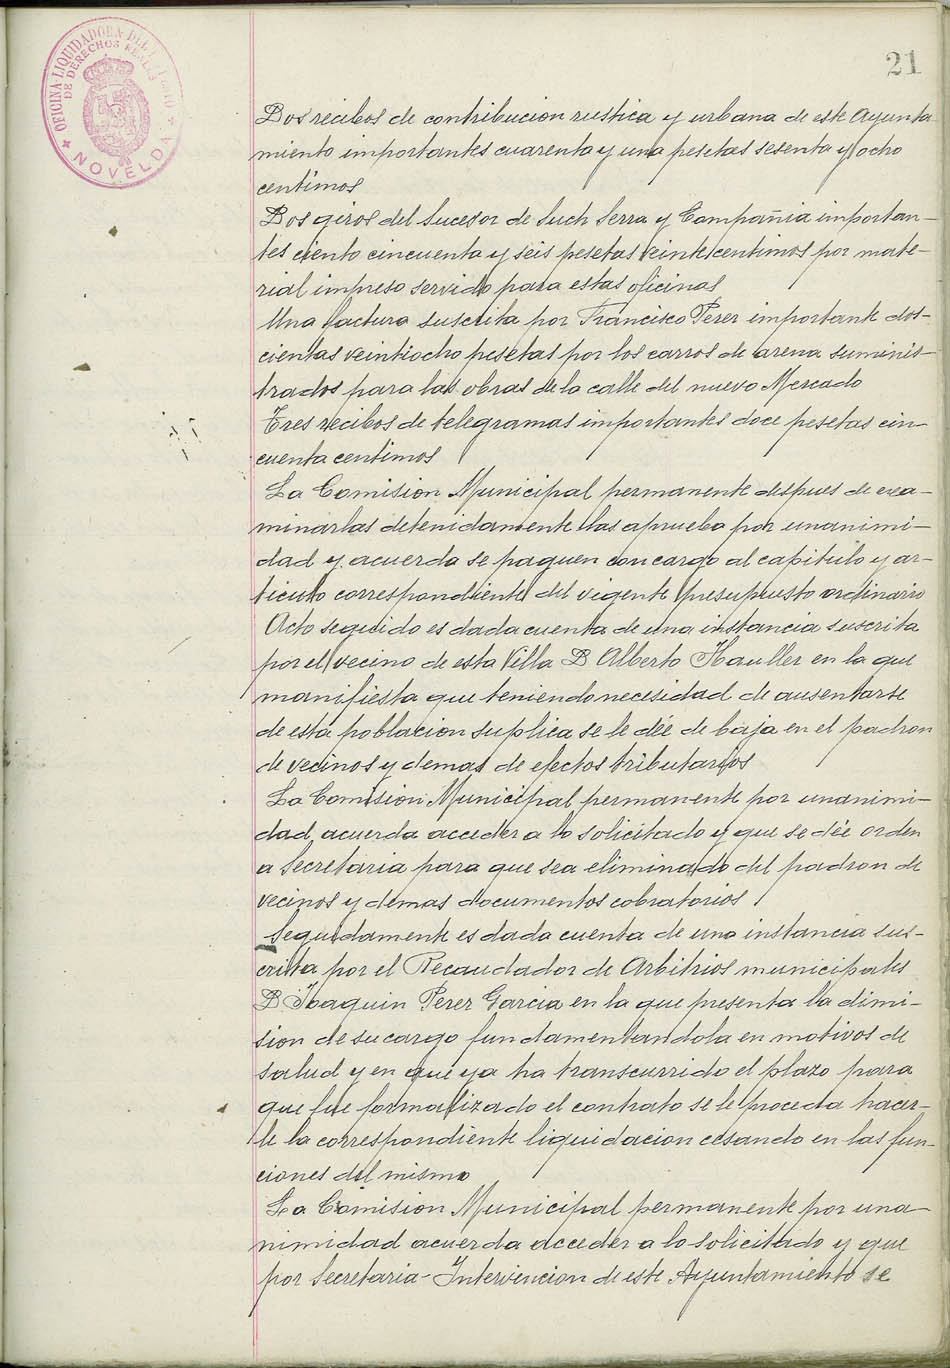 21
OFICINA LIQUIDADORA DEL
DE DERECHOS REALES
NOVELDA
Dos recibos de contribucion rustica y urbana de este Ayunta
miento importantes cuarenta y una pesetas sesenta y ocho
centimos
Dos giros del Sucesor de Such Serra y Compañia importan-
tes ciento cincuenta y seis pesetas veinte centimos por mate-
rial impreso servido para estas oficinas
Una factura suscrita por Francisco Perez importante dos-
cientas veintiocho pesetas por los carros de arena suminis-
trados para las obras de la calle del nuevo Mercado
Tres recibos de telegramas importantes doce pesetas cin-
cuenta centimos
La Comision Municipal permanente despues de exa-
minarlas detenidamente las aprueba por unanimi-
dad y acuerda se paguen con cargo al capitulo y ar-
ticulo correspondiente del vigente presupuesto ordinario
Acto seguido es dada cuenta de una instancia suscrita
por el vecino de esta Villa D Alberto Haller en la que
manifiesta que teniendo necesidad de ausentarse
de esta poblacion suplica se le dée de baja en el padron
de vecinos y demas de efectos tributarios
La Comision Municipal permanente por unanimi-
dad acuerda acceder a lo solicitado y que se dée orden
a Secretaria para que sea eliminado del padron de
vecinos y demas documentos cobratorios
Seguidamente es dada cuenta de una instancia sus-
crita por el Recaudador de Arbitrios municipales
D Joaquin Perez Garcia en la que presenta la dimi-
sion de su cargo fundamentandola en motivos de
salud y en que ya ha transcurrido el plazo para
que fue formalizado el contrato se le proceda hacer-
le la correspondiente liquidacion cesando en las fun-
ciones del mismo
La Comision Municipal permanente por una-
nimidad acuerda acceder a lo solicitado y que
por Secretaria-Intervencion de este Ayuntamiento se